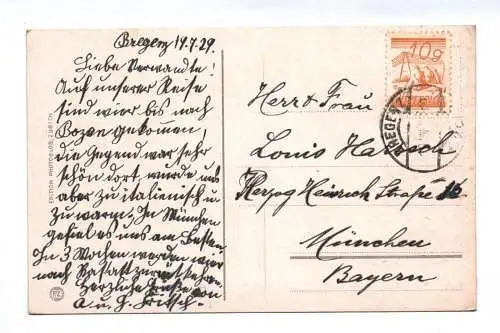 Bregenz 19.7.29.
Liebe Verwandte!
Auf unserer Reise
sind wier bis nach
Bozen gekomen,
die Gegend war sehr
schön dort, wurde uns
aber zu italienisch u.
zu warm. In München
gefiel es uns am Besten
In 3 Wochen werden wier
nach Rastatt zurückkehren.
Herzliche Grüße von
a. u. H.
EDITION PHOTOGLOB, ZÜRICH
10g
BREGENZ
Herr & Frau
Louis
Herzog Heinrich Straße 16
München
Bayern